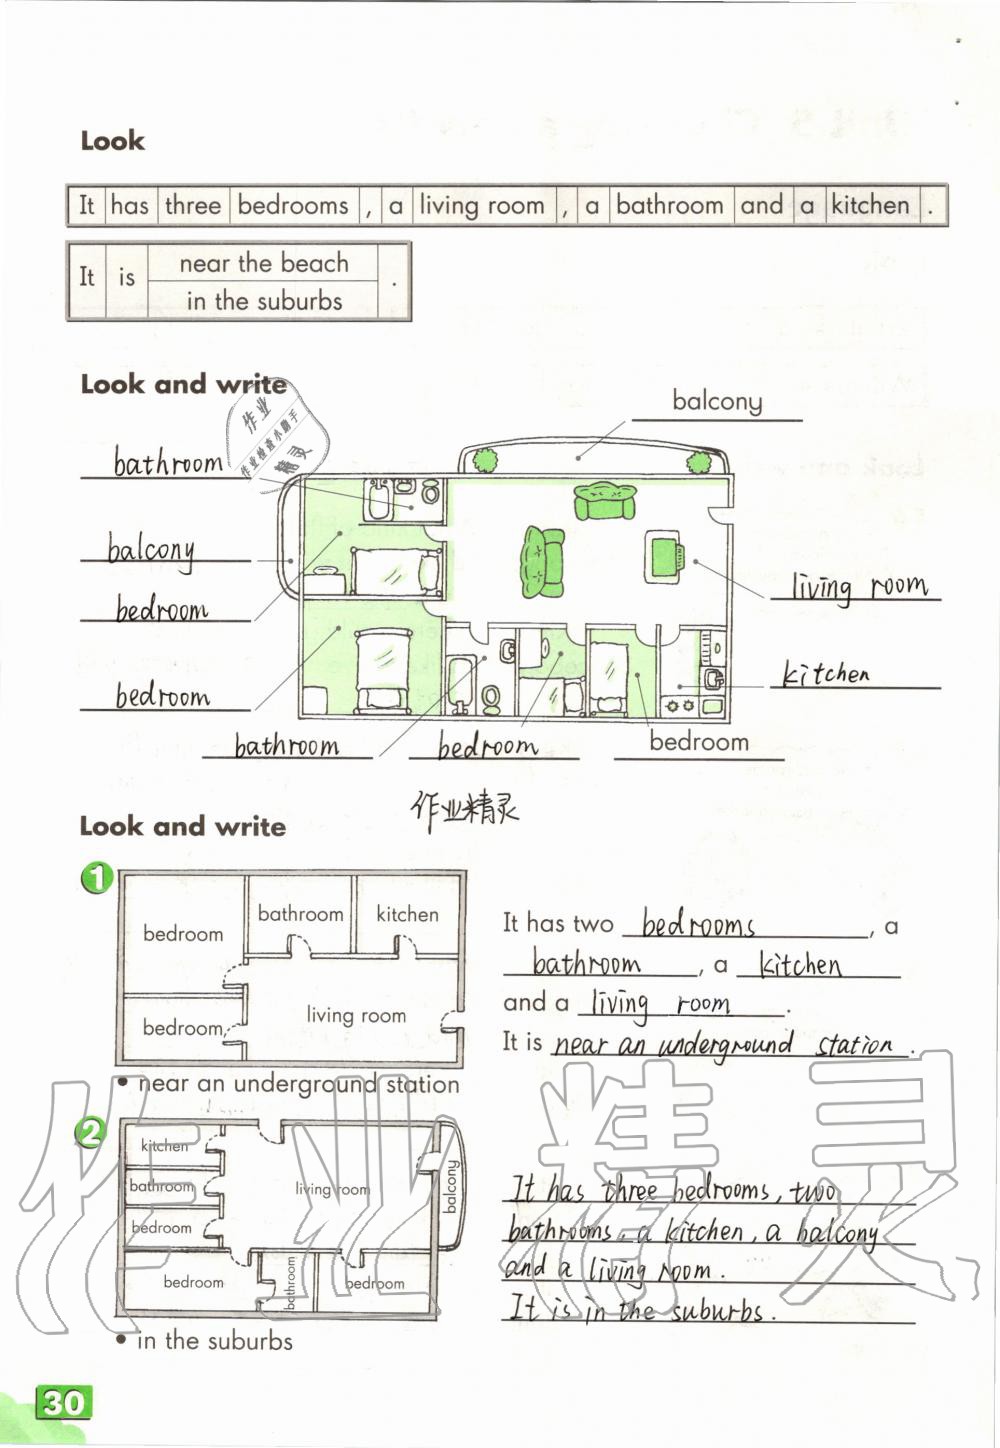 Look
It has three bedrooms , a living room , a bathroom and a kitchen .
It is near the beach .
in the suburbs
Look and write
作业
作业检查小助手
精灵
balcony
bathroom
balcony
bedroom
living room
bedroom
kitchen
bathroom
bedroom
bedroom
作业精灵
Look and write
1
bedroom
bathroom
kitchen
living room
bedroom
• near an underground station
It has two bedrooms , a
bathroom , a kitchen
and a living room .
It is near an underground station .
2
kitchen
bathroom
living room
balcony
bedroom
bedroom
bathroom
bedroom
• in the suburbs
It has three bedrooms, two
bathrooms, a kitchen, a balcony
and a living room.
It is in the suburbs.
作业精灵
30